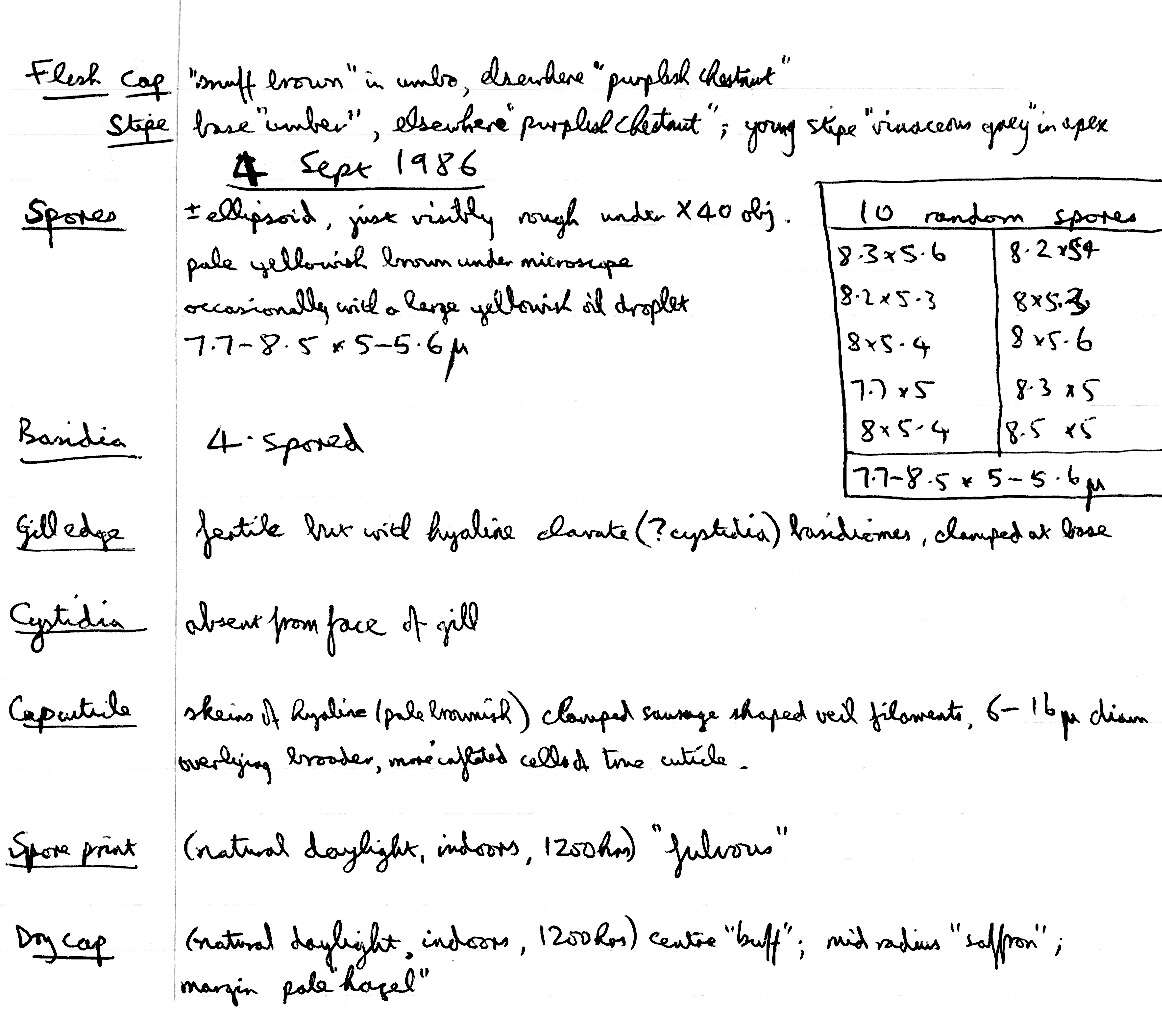 Flesh Cap "snuff brown" in umbo, elsewhere "purplish chestnut"
Stipe base "umber", elsewhere "purplish chestnut"; young stipe "vinaceous grey" in apex
4 Sept 1986
Spores ± ellipsoid, just visibly rough under ×40 obj.
pale yellowish brown under microscope
occasionally with a large yellowish oil droplet
7.7–8.5 × 5–5.6 µ
10 random spores
8.3×5.6 8.2×5.4
8.2×5.3 8×5.3
8×5.4 8×5.6
7.7×5 8.3×5
8×5.4 8.5×5
7.7–8.5 × 5–5.6 µ
Basidia 4-spored
Gill edge fertile but with hyaline clavate (? cystidia) basidiomes, clamped at base
Cystidia absent from face of gill
Cap cuticle skeins of hyaline (pale brownish) clamped sausage shaped veil filaments, 6–16 µ diam
overlying broader, more inflated cells of true cuticle.
Spore print (natural daylight, indoors, 1200hrs) "fulvous"
Dry cap (natural daylight, indoors, 1200hrs) centre "buff"; mid radius "saffron";
margin pale "hazel"